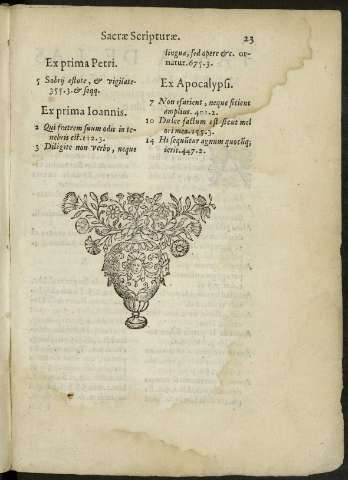 Sacræ Scripturæ. 23
Ex prima Petri.
5 Sobrij estote, & vigilate.
355.3. & seqq.
Ex prima Ioannis.
2 Qui fratrem suum odit in te-
nebris est. 112.3.
3 Diligite non verbo, neque
lingua, sed opere &c. or-
natur. 675.3.
Ex Apocalypsi.
7 Non esurient, neque sitient
amplius. 401.2.
10 Dulce factum est sicut mel
ori meo. 255.3.
14 Hi sequūtur agnum quocūq;
ierit. 447.2.